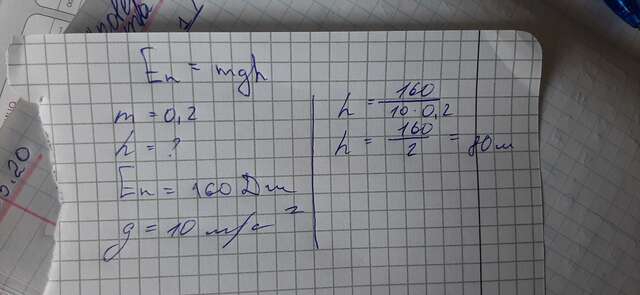 Eп = mgh
m = 0,2
h = ?
Eп = 160 Дж
g = 10 м/с²
h = 160 / 10 · 0,2
h = 160 / 2 = 80 м
5.20